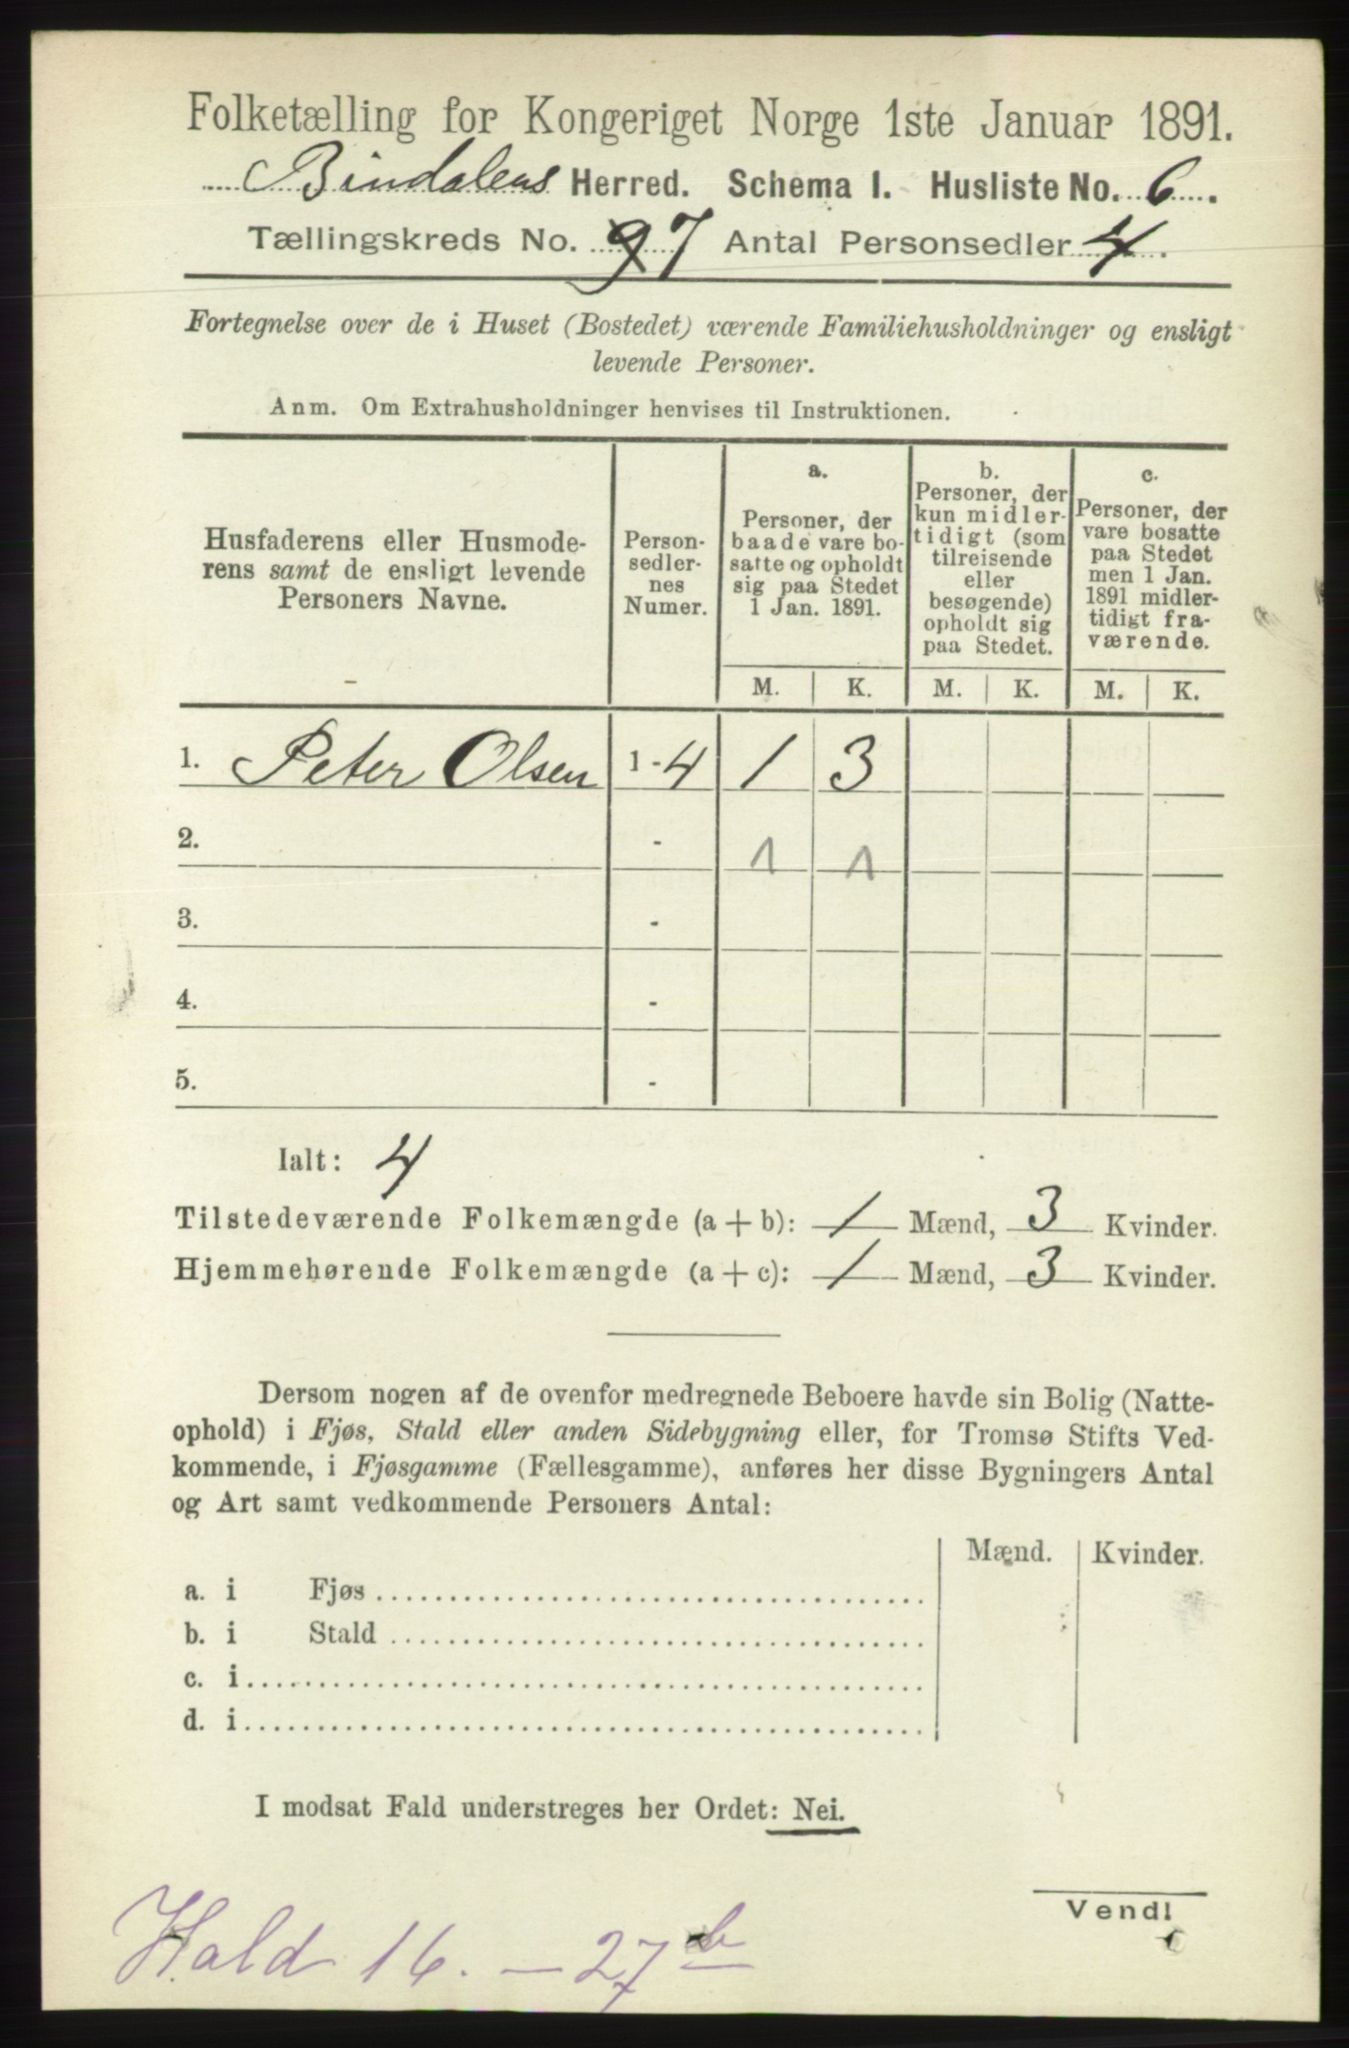 Folketælling for Kongeriget Norge 1ste Januar 1891.
Bindalens Herred. Schema I. Husliste No. 6.
Tællingskreds No. 9 7 Antal Personsedler 4.
Fortegnelse over de i Huset (Bostedet) værende Familiehusholdninger og ensligt
levende Personer.
Anm. Om Extrahusholdninger henvises til Instruktionen.
Husfaderens eller Husmode-
rens samt de ensligt levende
Personers Navne.
Person-
sedler-
nes
Numer.
a.
Personer, der
baade vare bo-
satte og opholdt
sig paa Stedet
1 Jan. 1891.
b.
Personer, der
kun midler-
tidigt (som
tilreisende
eller
besøgende)
opholdt sig
paa Stedet.
c.
Personer, der
vare bosatte
paa Stedet
men 1 Jan.
1891 midler-
tidigt fra-
værende.
M. K. M. K. M. K.
1. Peter Olsen 1 - 4 1 3
2. - 1 1
3. -
4. -
5. -
Ialt: 4
Tilstedeværende Folkemængde (a + b): 1 Mænd, 3 Kvinder.
Hjemmehørende Folkemængde (a + c): 1 Mænd, 3 Kvinder.
Dersom nogen af de ovenfor medregnede Beboere havde sin Bolig (Natte-
ophold) i Fjøs, Stald eller anden Sidebygning eller, for Tromsø Stifts Ved-
kommende, i Fjøsgamme (Fællesgamme), anføres her disse Bygningers Antal
og Art samt vedkommende Personers Antal:
Mænd. Kvinder.
a. i Fjøs
b. i Stald
c. i
d. i
I modsat Fald understreges her Ordet: Nei.
Vend!
Hald 16. – 27 b